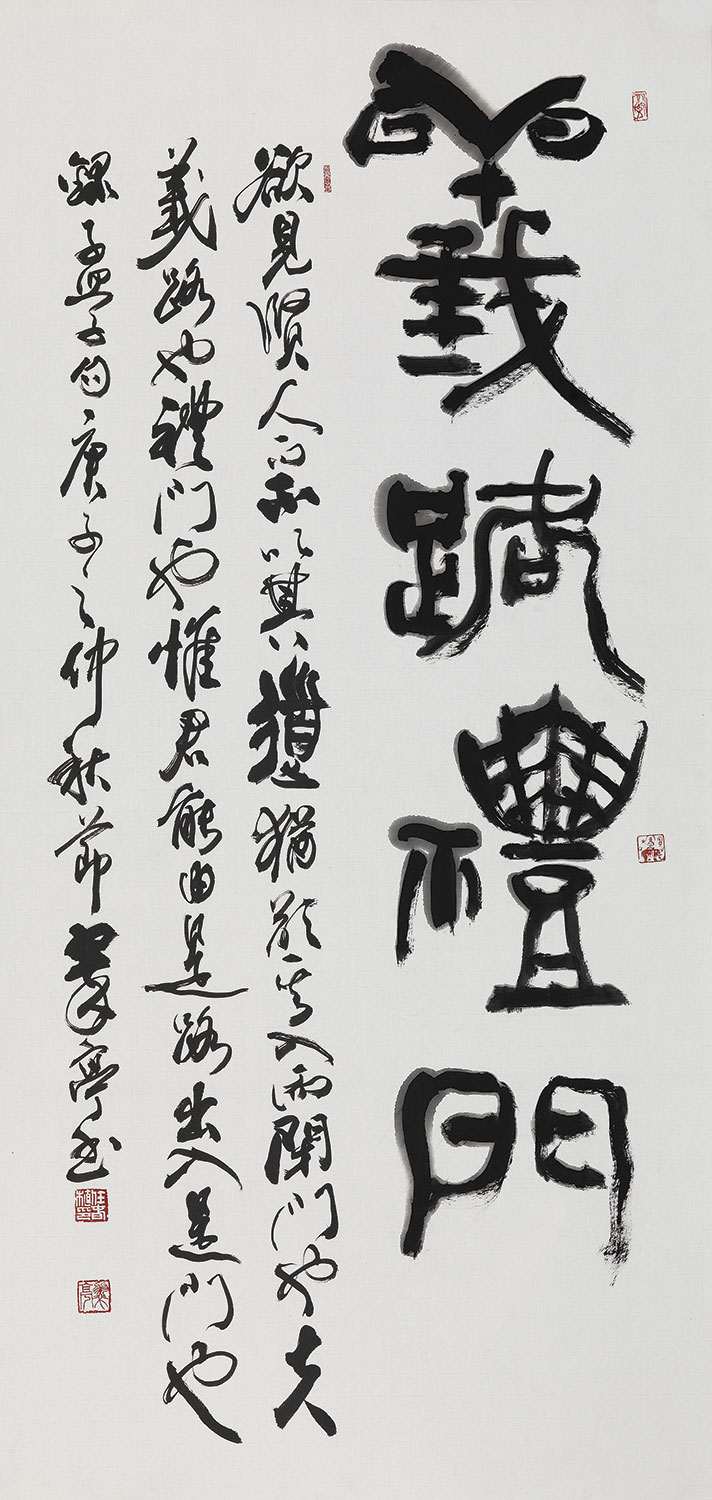 義路禮門
欲見賢人而不以其道猶欲其入而閉門也夫
義路也禮門也惟君能由是路出入是門也
錄孟子句庚子之仲秋節 亭書